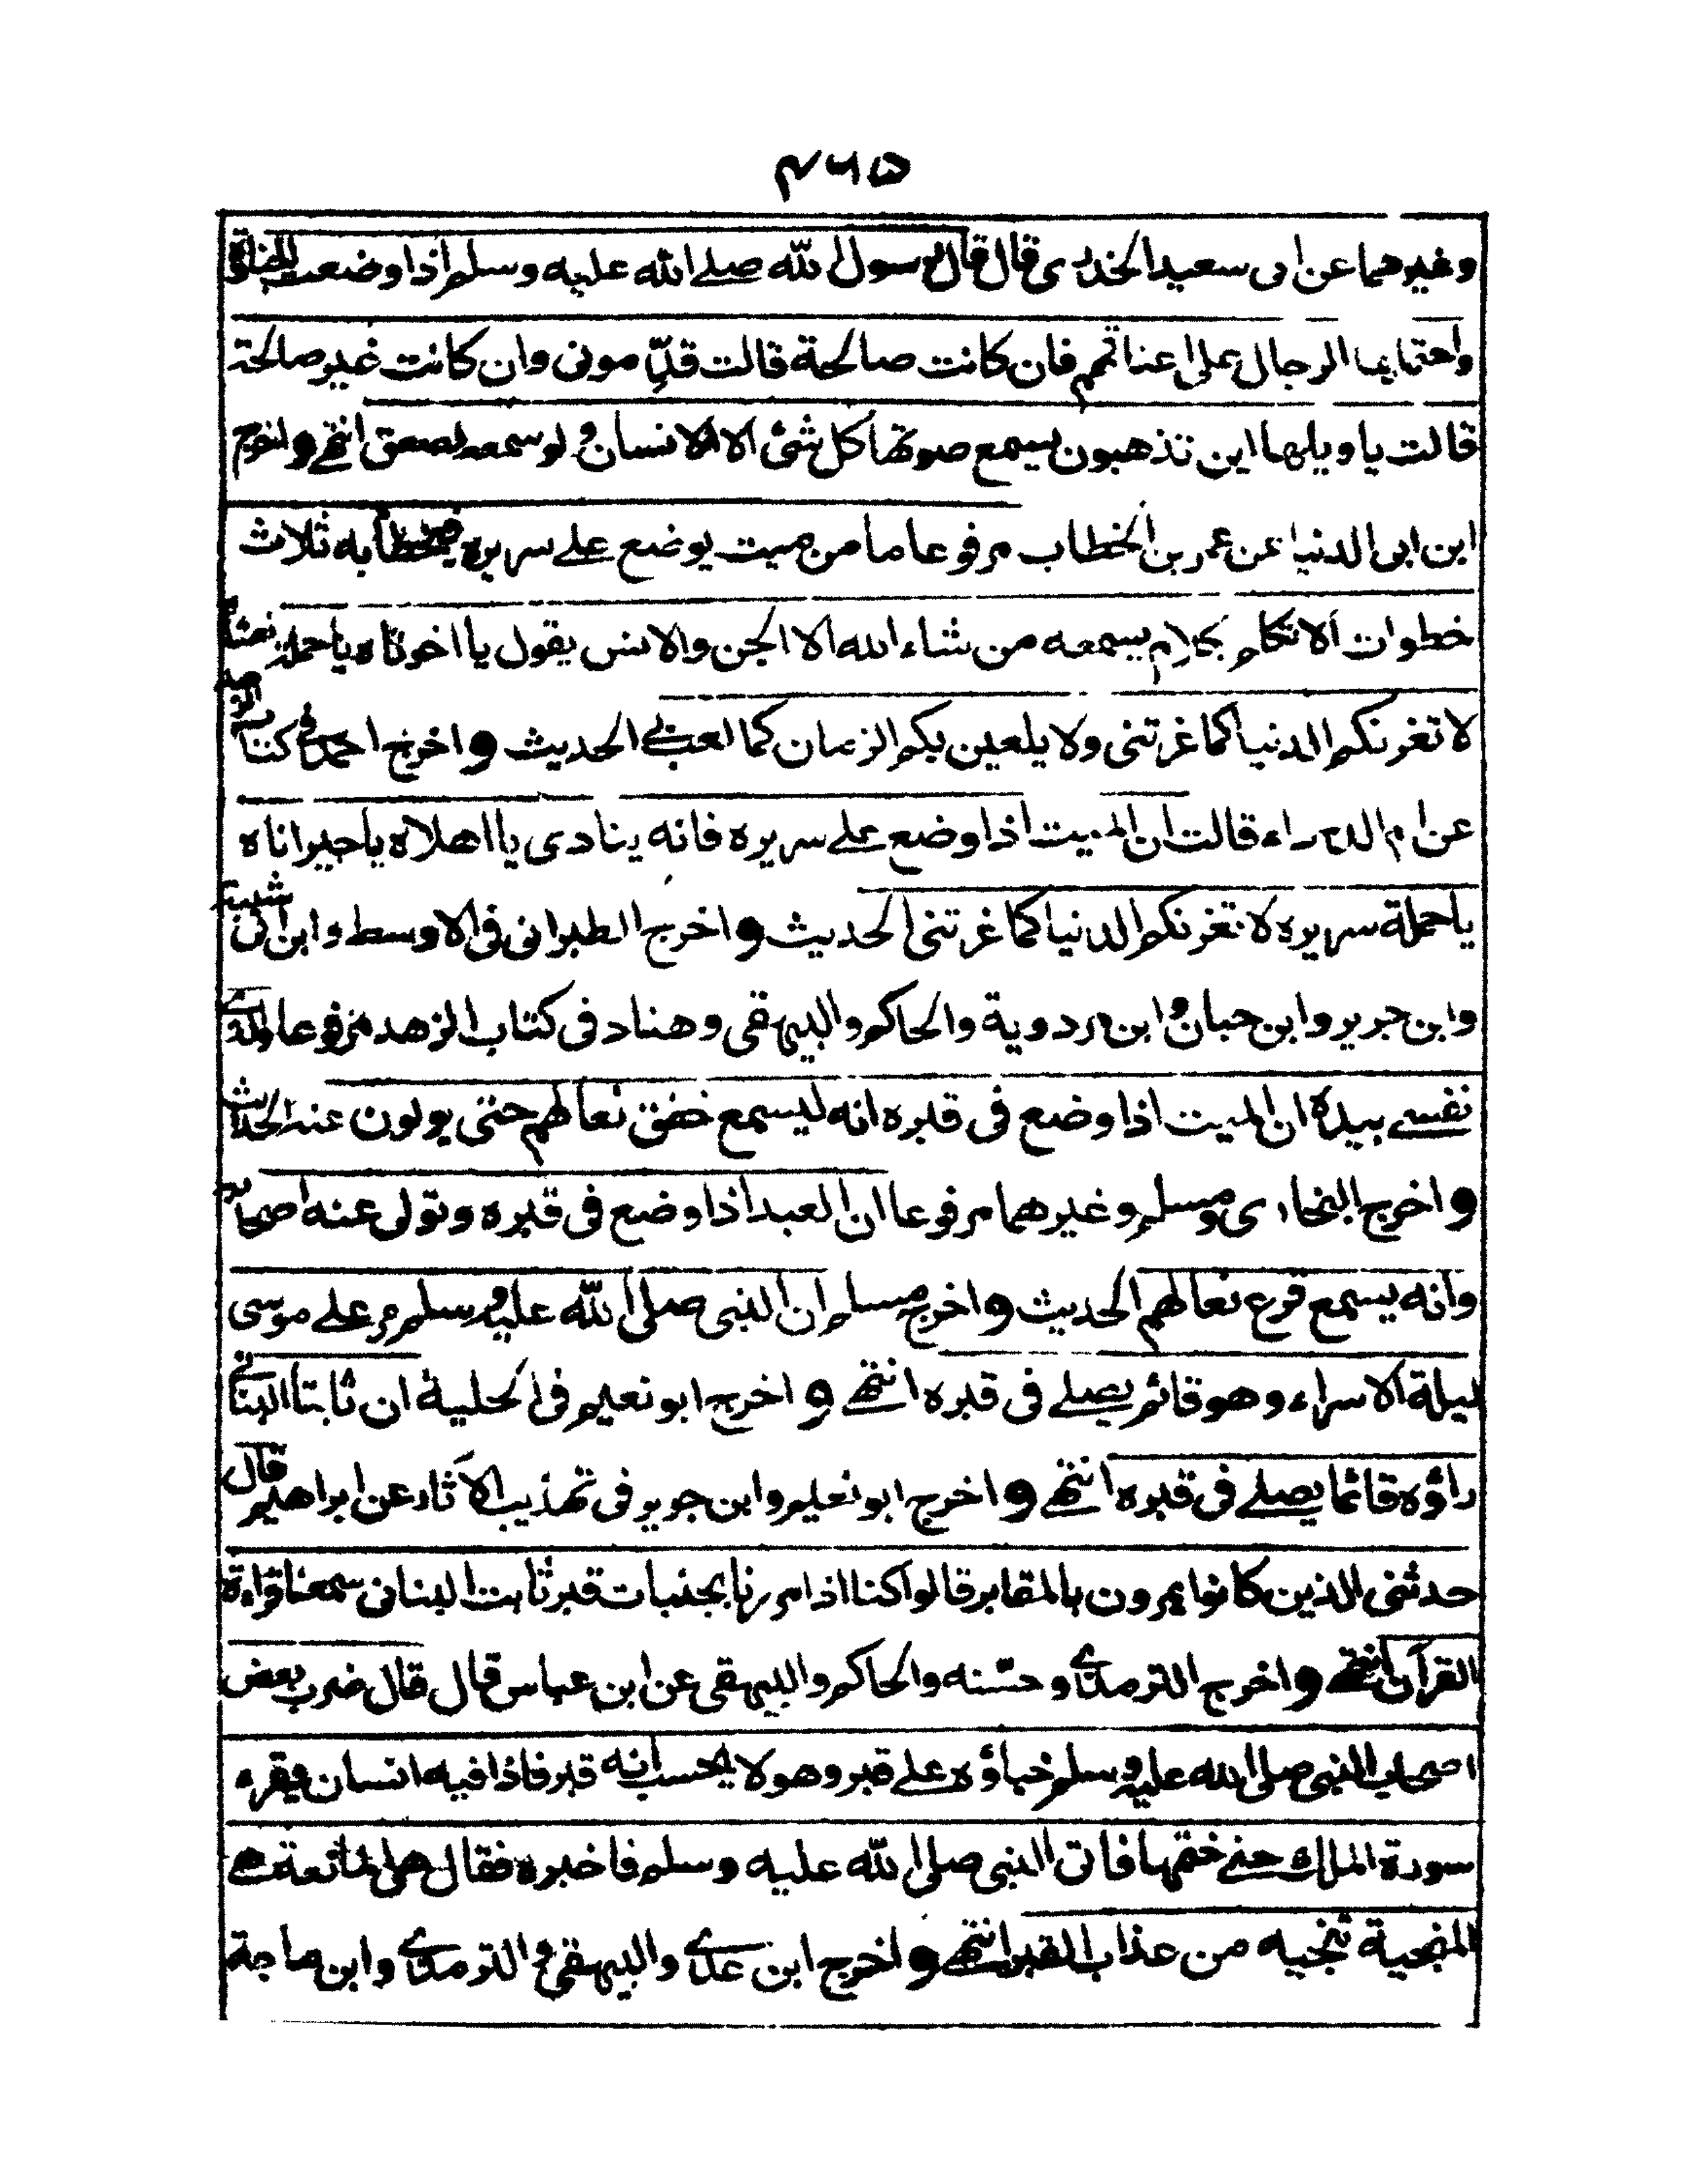 ۴۶۵
وغيرهما عن ابى سعيد الخدرى قال قال رسول الله صلے الله عليه وسلم اذا وضعت الجنازة
واحتملها الرجال على اعناقهم فان كانت صالحة قالت قدّمونى وان كانت غير صالحة
قالت يا ويلها اين تذهبون يسمع صوتها كل شئ الا الانسان ولو سمعه لصعق انتهے واخرج
ابن ابى الدنيا عن عمر بن الخطاب مرفوعا ما من ميت يوضع علے سريره فيخطا به ثلاث
خطوات الا تكلم بكلام يسمعه من شاء الله الا الجن والانس يقول يا اخوتاه ياحملة نعشاه
لا تغرنكم الدنيا كما غرتنى ولا يلعبن بكم الزمان كما لعب بى الحديث واخرج احمد فى كتاب الزهد
عن ام الدرداء قالت ان الميت اذا وضع علے سريره فانه ينادى يا اهلاه يا جيراناه
يا حملة سريره لا تغرنكم الدنيا كما غرتنى الحديث واخرج الطبرانى فى الاوسط وابن ابى شيبة
وابن جرير وابن حبان وابن مردوية والحاكم والبيهقى وهناد فى كتاب الزهد مرفوعا والذے
نفسے بيده ان الميت اذا وضع فى قبره انه ليسمع خفق نعالهم حتى يولون عنه الحديث
واخرج البخارى ومسلم وغيرهما مرفوعا ان العبد اذا وضع فى قبره وتولى عنه اصحابه
وانه يسمع قرع نعالهم الحديث واخرج مسلم ان النبى صلى الله عليه وسلم مر علے موسى
ليلة الاسراء وهو قائم يصلے فى قبره انتهے واخرج ابو نعيم فى الحلية ان ثابتا البنانى
راؤه قائما يصلے فى قبره انتهے واخرج ابو نعيم وابن جرير فى تهذيب الآثار عن ابراهيم قال
حدثنى الذين كانوا يمرون بالمقابر قالوا كنا اذا مررنا بجنبات قبر ثابت البنانى سمعنا قراءة
القرآن انتهے واخرج الترمذے وحسّنه والحاكم والبيهقى عن ابن عباس قال قال ضرب بعض
اصحاب النبى صلى الله عليه وسلم خباؤه علے قبر وهو لا يحسب انه قبر فاذا فيه انسان يقرء
سورة الملك حتے ختمها فاتى النبى صلى الله عليه وسلم فاخبره فقال هى المانعة هے
المنجية تنجيه من عذاب القبر انتهے واخرج ابن عدے والبيهقى والترمذے وابن ماجة